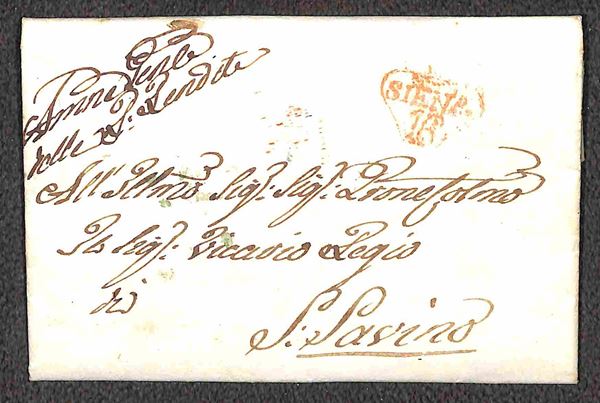 Amne Genle
delle R: Rendite
SIENA
All' Illmo Sigr: Sigr: Prone Colmo
Il Sigr: Vicario Regio
di
S: Savino